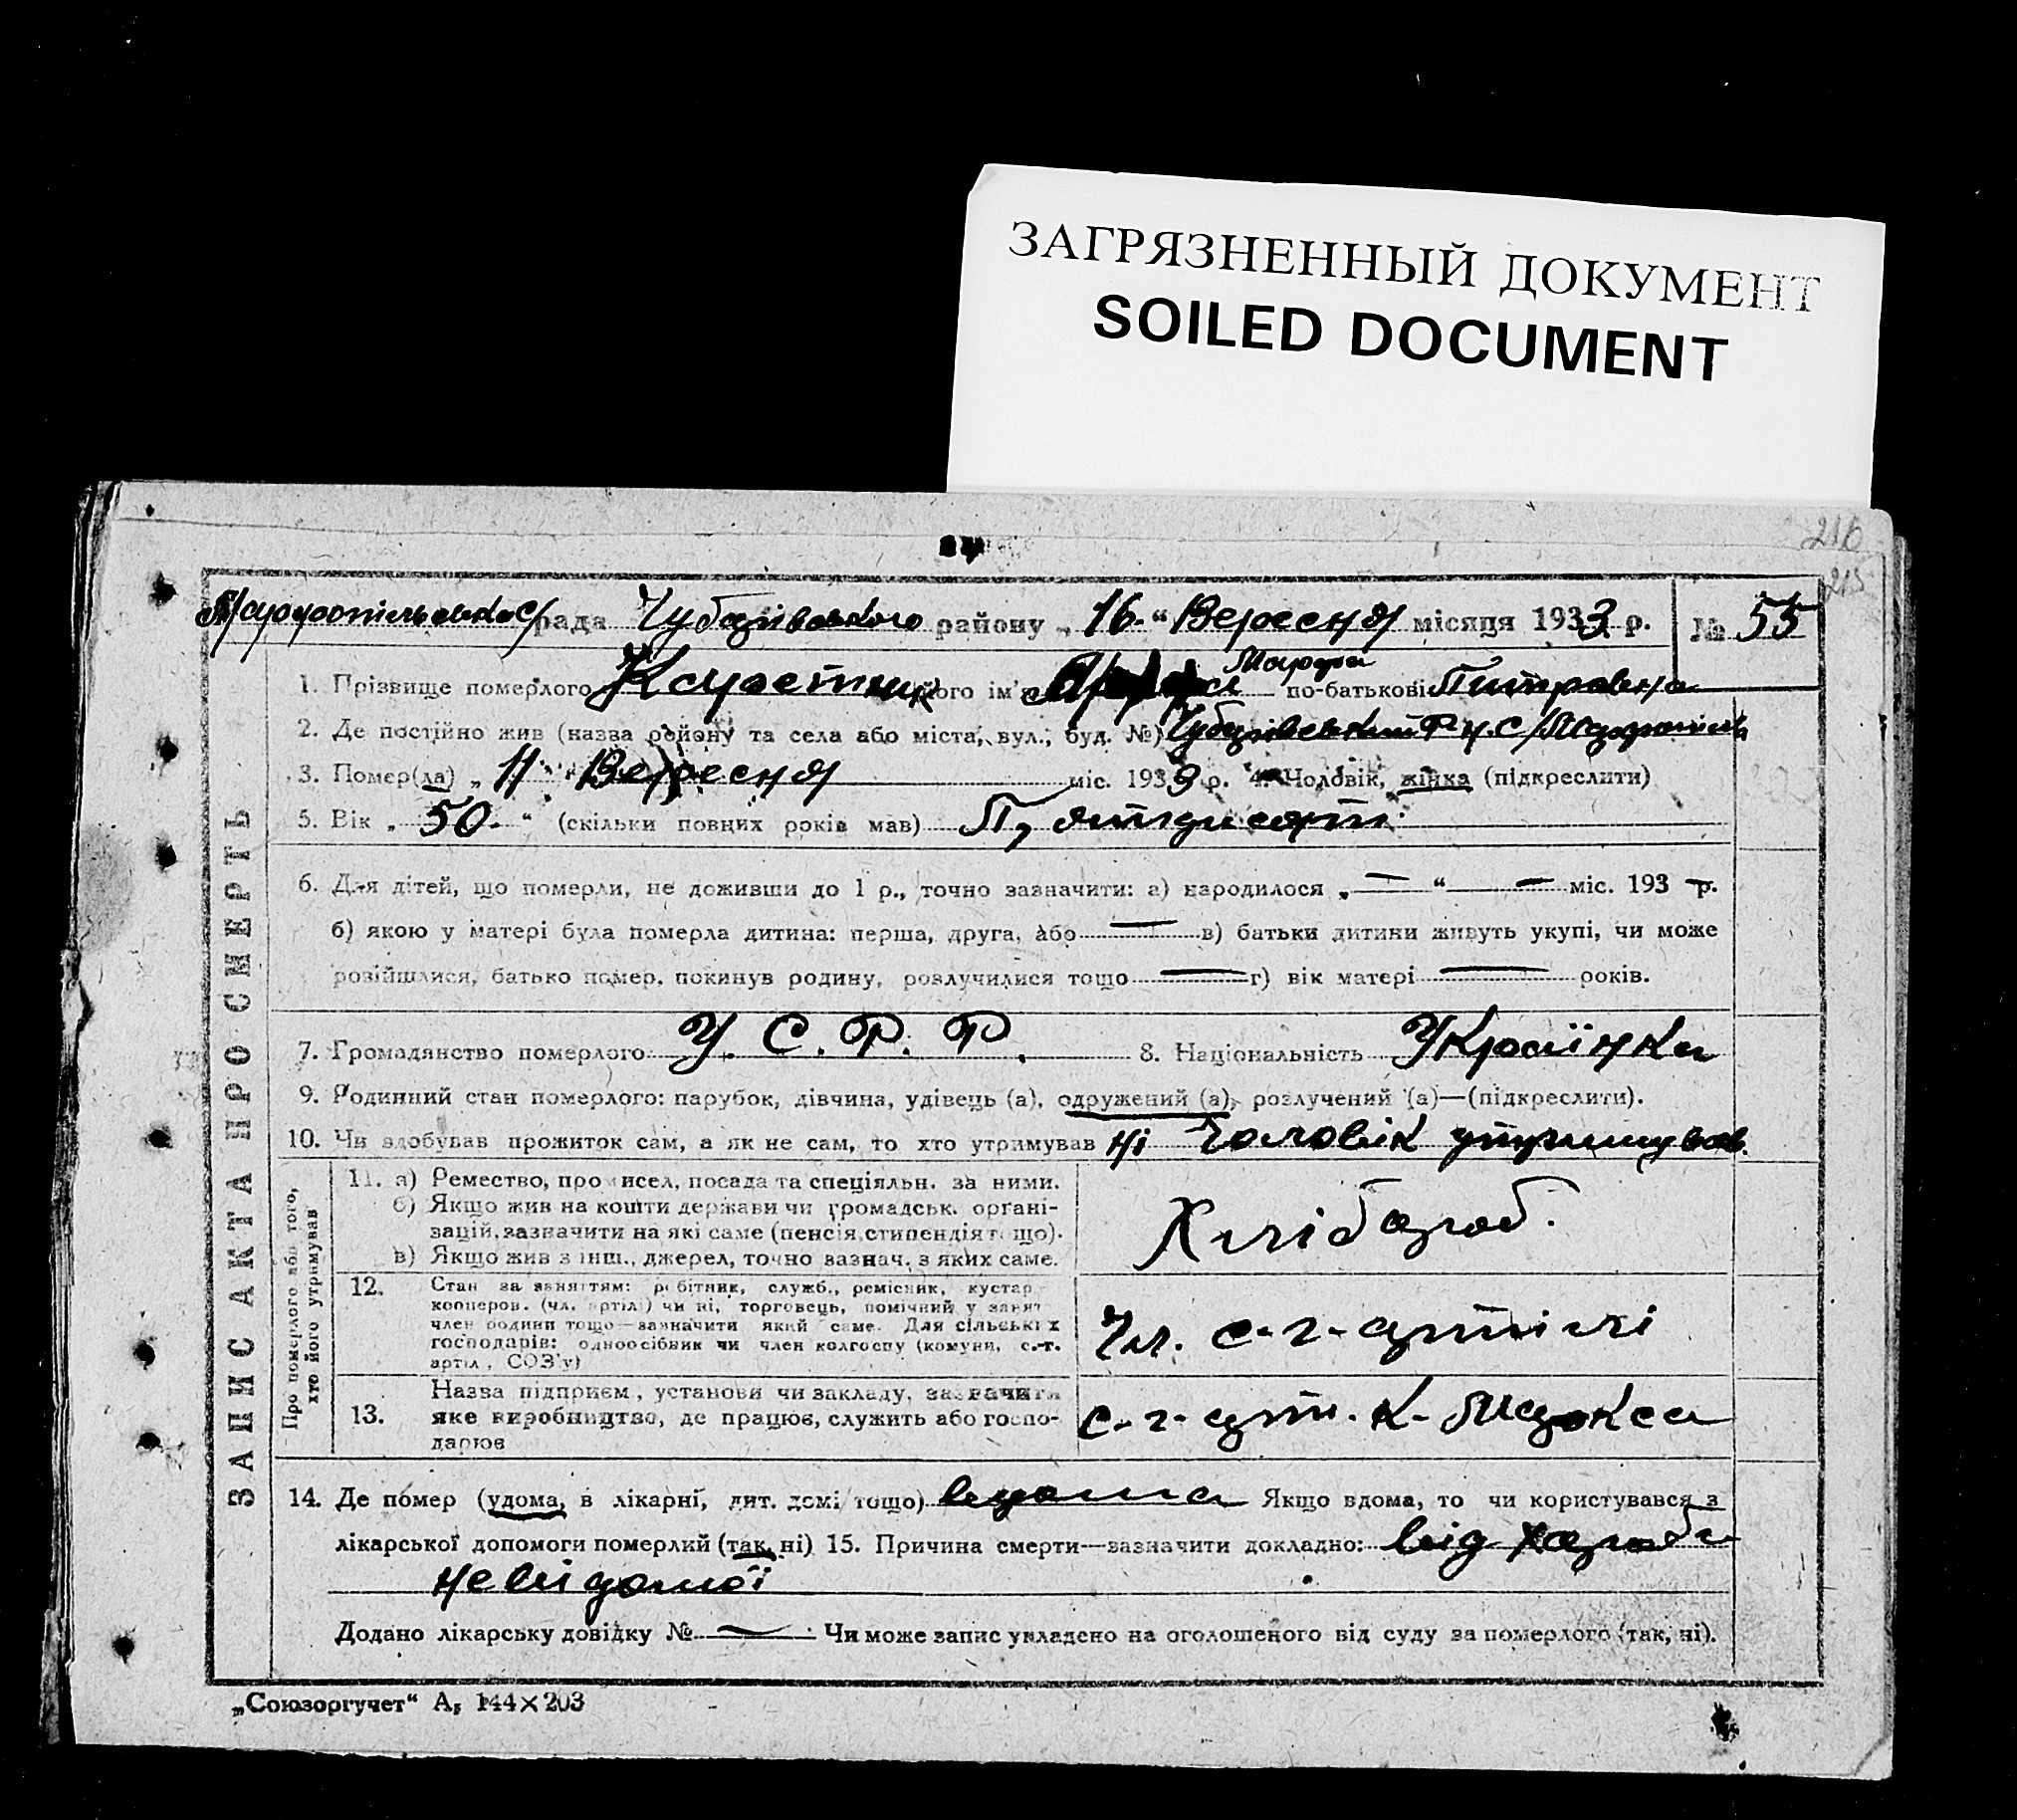 ЗАГРЯЗНЕННЫЙ ДОКУМЕНТ
SOILED DOCUMENT
216
215
рада Чубарівського району „ 16 “ Вересня місяця 1933 р. № 55
1. Прізвище померлого його ім'я Марфа по-батькові Питровна
2. Де постійно жив (назва району та села або міста, вул., буд. №) Чубарівський
3. Помер(ла) „ 11 “ Вересня міс. 1933 р. 4. Чоловік, жінка (підкреслити)
5. Вік „ 50. “ (скільки повних років мав) П,ятдисят
6. Для дітей, що померли, не доживши до 1 р., точно зазначити: а) народилося „ — “ — міс. 193 — р.
б) якою у матері була померла дитина: перша, друга, або — в) батьки дитини живуть укупі, чи може
розійшлися, батько помер, покинув родину, розлучилися тощо — г) вік матері — років.
7. Громадянство померлого У. С. Р. Р. 8. Національність Українка
9. Родинний стан померлого: парубок, дівчина, удівець (а), одружений (а), розлучений (а)—(підкреслити).
10. Чи здобував прожиток сам, а як не сам, то хто утримував ні Чоловік утримував.
ЗАПИС АКТА ПРО СМЕРТЬ
Про померлого або того, хто його утримував
11. а) Ремество, промисел, посада та спеціяльн. за ними.
б) Якщо жив на кошти держави чи громадськ. органі-
зацій, зазначити на які саме (пенсія, стипендія тощо).
в) Якщо жив з інш., джерел, точно зазнач. з яких саме.
Хлібороб.
12. Стан за заняттям: робітник, служб., ремісник, кустар
кооперов. (чл. артілі) чи ні, торговець, помічний у занят
член родини тощо—зазначити який саме. Для сільських
господарів: одноосібник чи член колгоспу (комуни, с.-г.
артіл, СОЗ'у)
Чл. с-г-артілі
13. Назва підприєм, установи чи закладу, зазначити
яке виробництво, де працює, служить або госпо-
дарює
с-г-арт. К-Маркса
14. Де помер (удома, в лікарні, дит. домі тощо) вдома Якщо вдома, то чи користувався з
лікарської допомоги померлий (так, ні) 15. Причина смерти—зазначити докладно: від хароби
невідомої
Додано лікарську довідку № — Чи може запис укладено на оголошеного від суду за померлого (так, ні).
„Союзоргучет“ А5 144×203